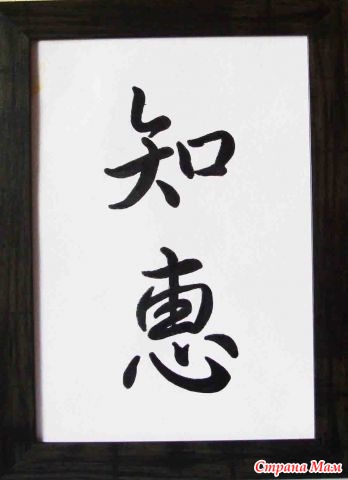 知
恵
Страна Мам